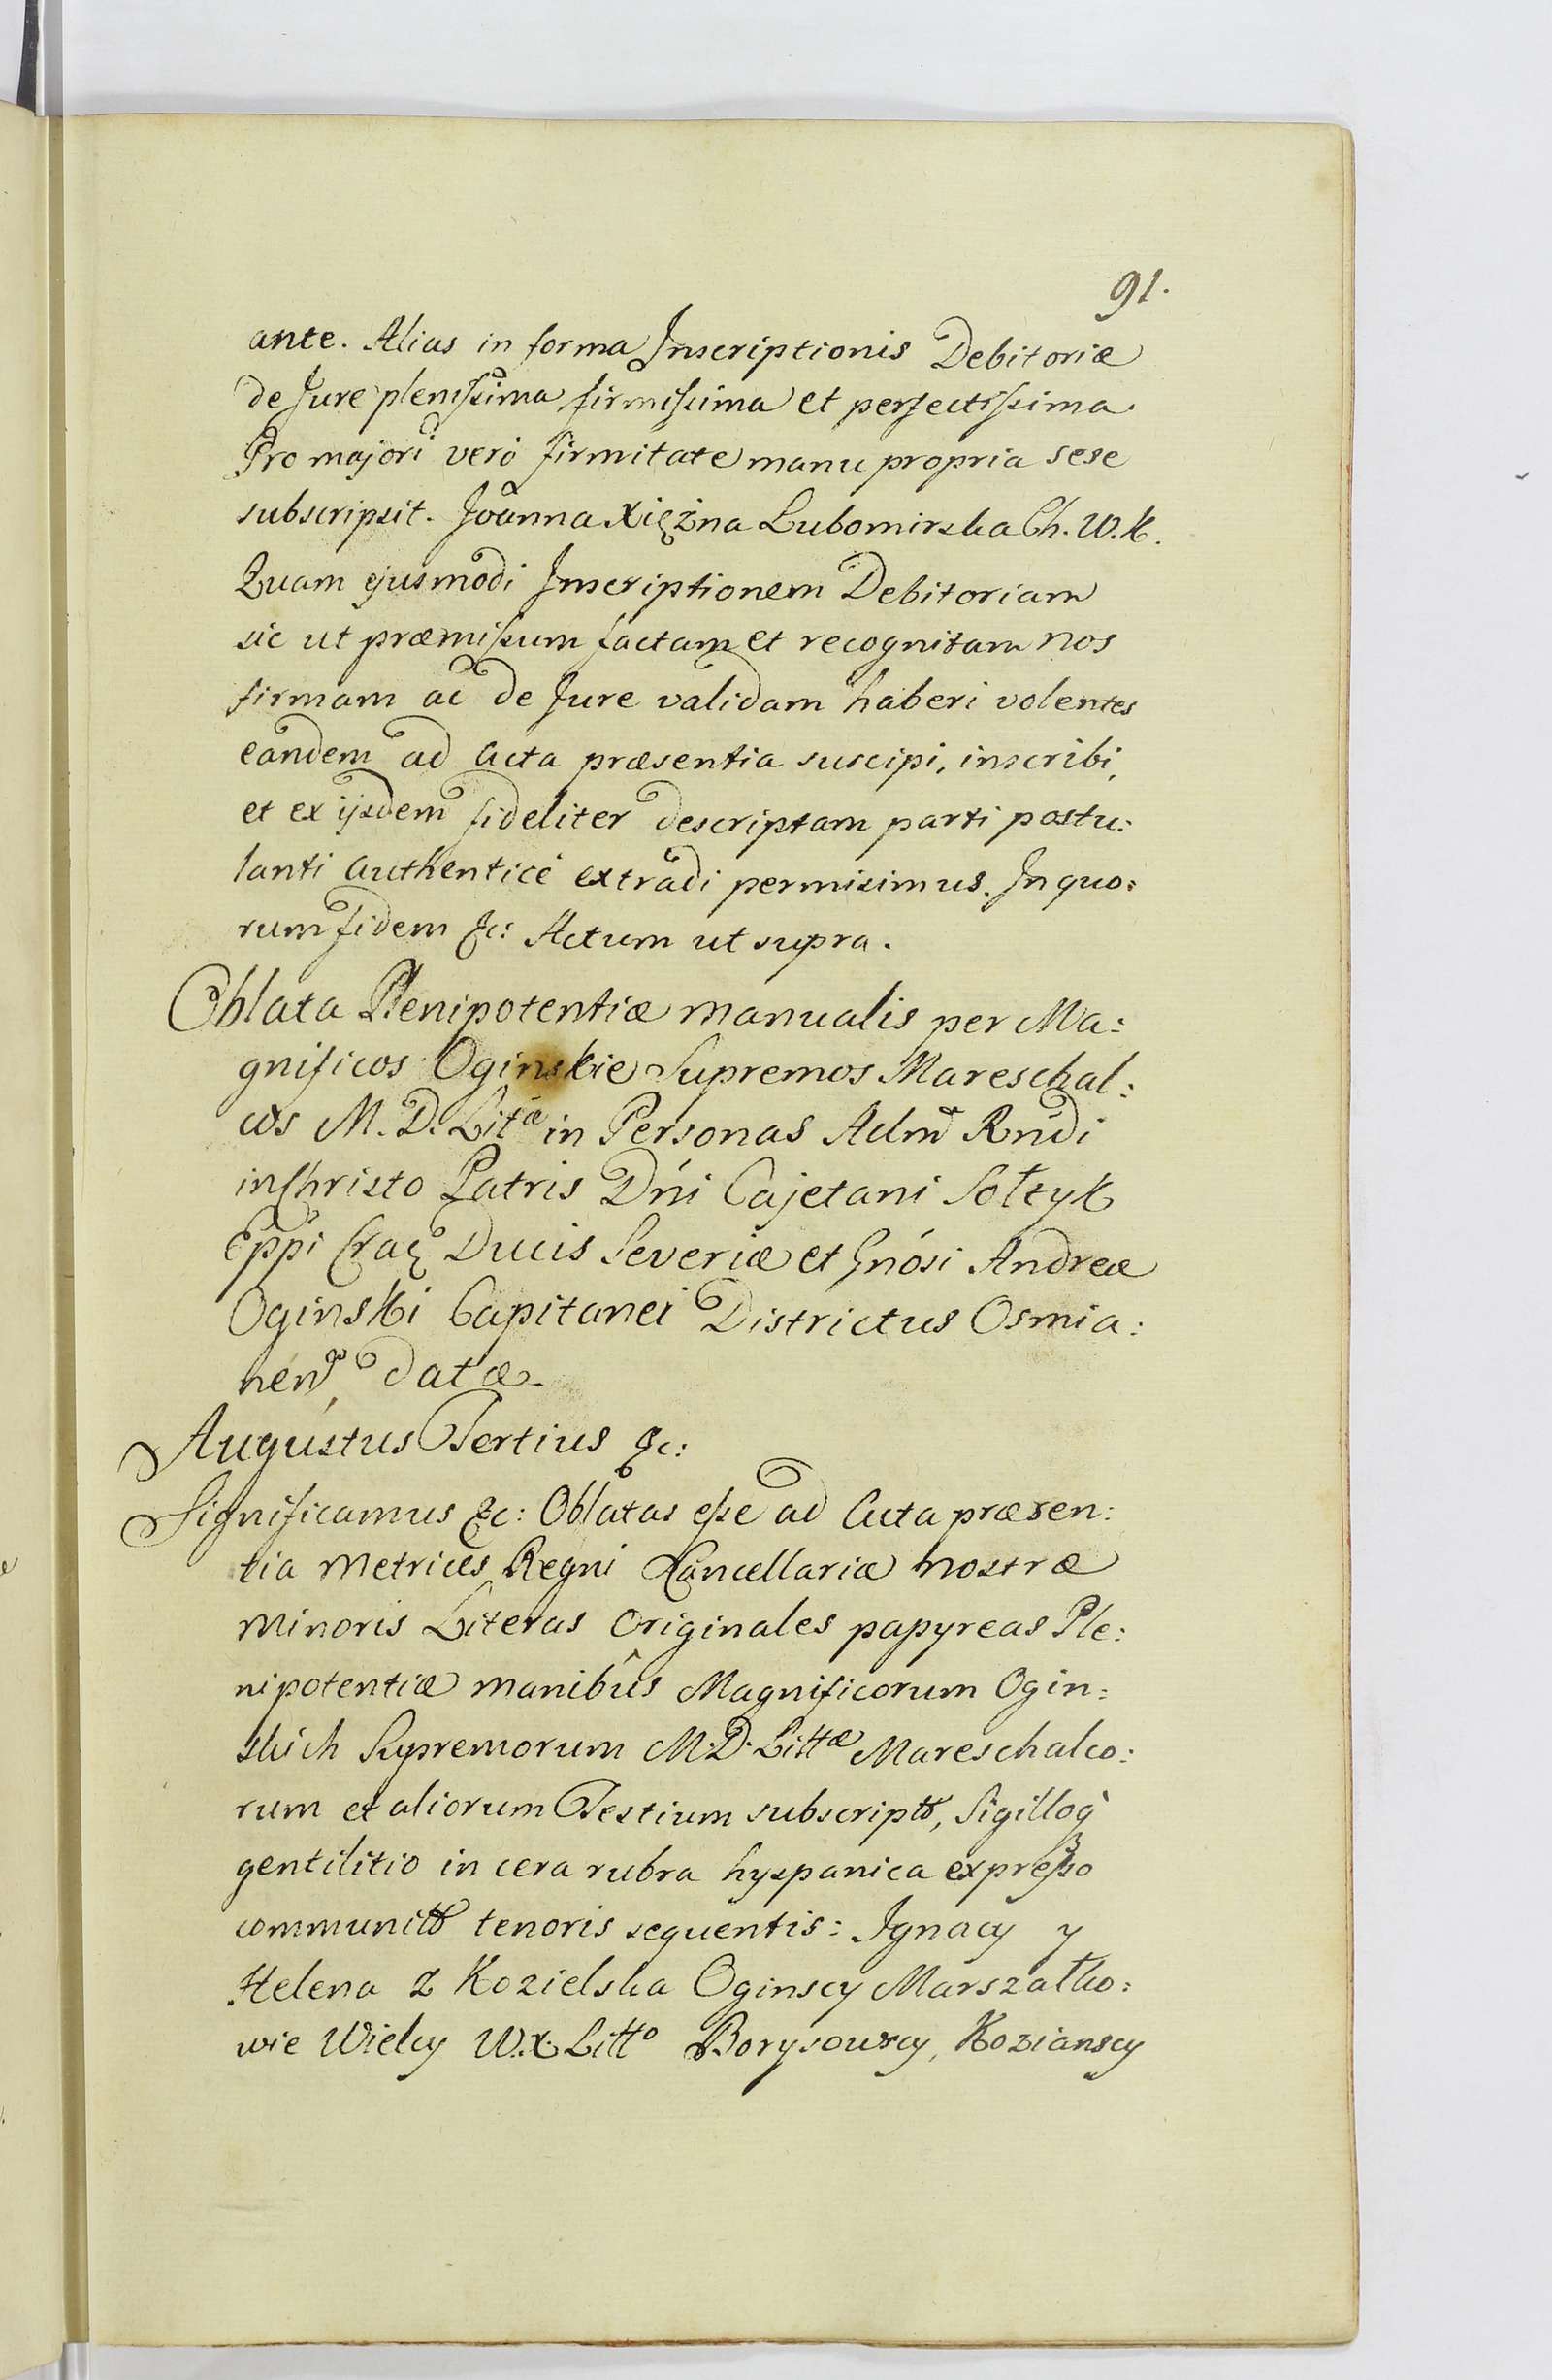 91.
ante. Alias in forma Inscriptionis Debitoriæ
de Jure plenissima firmissima et perfectissima.
Pro majori verò firmitate manu propria sese
subscripsit. Joanna Xiężna Lubomirska Ch. W. K.
Quam ejusmodi Inscriptionem Debitoriam
sic ut præmissum factam et recognitam nos
firmam ac de Jure validam haberi volentes
eandem ad Acta præsentia suscipi, inscribi,
et ex ijsdem fideliter descriptam parti postu:
lanti authenticè extradi permisimus. In quo:
rum fidem &c: Actum ut supra.
Oblata Plenipotentiæ manualis per Ma:
gnificos Oginskie Supremos Mareschal:
cos M. D. Litæ in Personas Adm̃ Rńdi
in Christo Patris Dńi Cajetani Sołtyk
Eppi Crac̨ Ducis Severiæ et Gńosi Andreæ
Oginski Capitanei Districtus Osmia:
nen̄ datæ.
Augustus Tertius &c:
Significamus &c: Oblatas esse ad Acta præsen:
tia Metrices Regni Cancellariæ nostræ
Minoris Literas Originales papyreas Ple:
nipotentiæ manibûs Magnificorum Ogin:
skich Supremorum M. D. Littæ Mareschalco:
rum et aliorum Testium subscriptas, Sigilloq̀
gentilitio in cera rubra hyspanica expresso
communitas tenoris sequentis: Ignacy y
Helena z Kozielska Oginscy Marszałko:
wie Wielcy W. X. Litto Borysowscy, Kozianscy